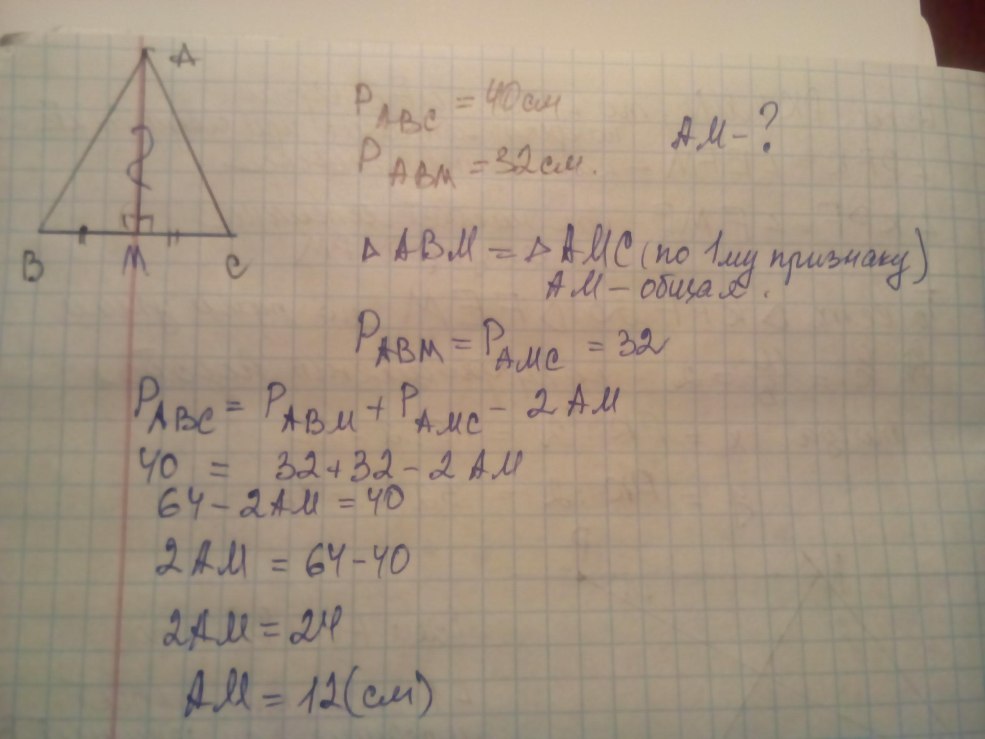 A
B M C
P ABC = 40 см
P ABM = 32 см.
AM - ?
Δ ABM = Δ AMC (по 1му признаку)
AM - общая.
P ABM = P AMC = 32
P ABC = P ABM + P AMC - 2 AM
40 = 32 + 32 - 2 AM
64 - 2AM = 40
2 AM = 64 - 40
2AM = 24
AM = 12 (см)